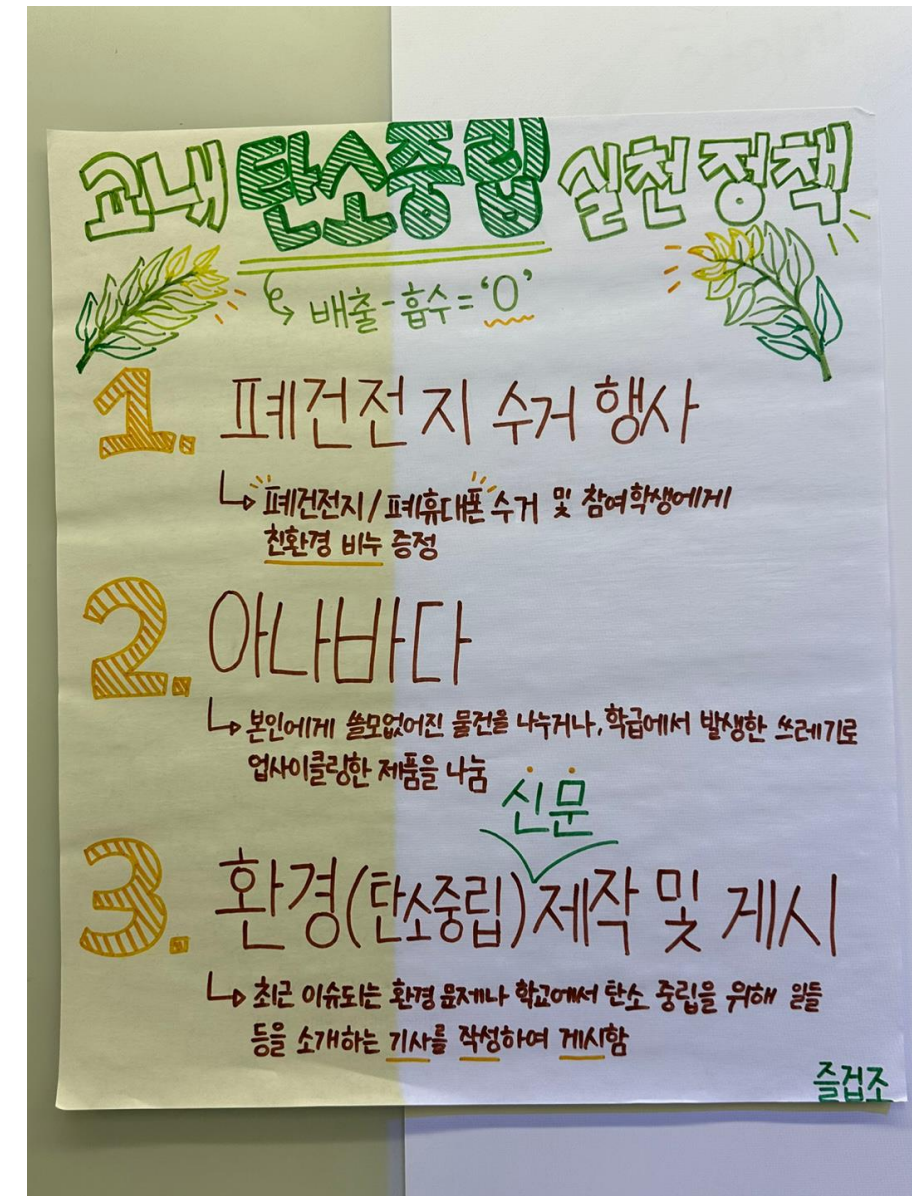 교내 탄소중립 실천 정책
배출-흡수='0'
1. 폐건전지 수거 행사
폐건전지/폐휴대폰 수거 및 참여학생에게
친환경 비누 증정
2. 아나바다
본인에게 쓸모없어진 물건을 나누거나, 학급에서 발생한 쓰레기로
업사이클링한 제품을 나눔
신문
3. 환경(탄소중립) 제작 및 게시
최근 이슈되는 환경 문제나 학교에서 탄소 중립을 위해 일들
등을 소개하는 기사를 작성하여 게시함
즐겁조